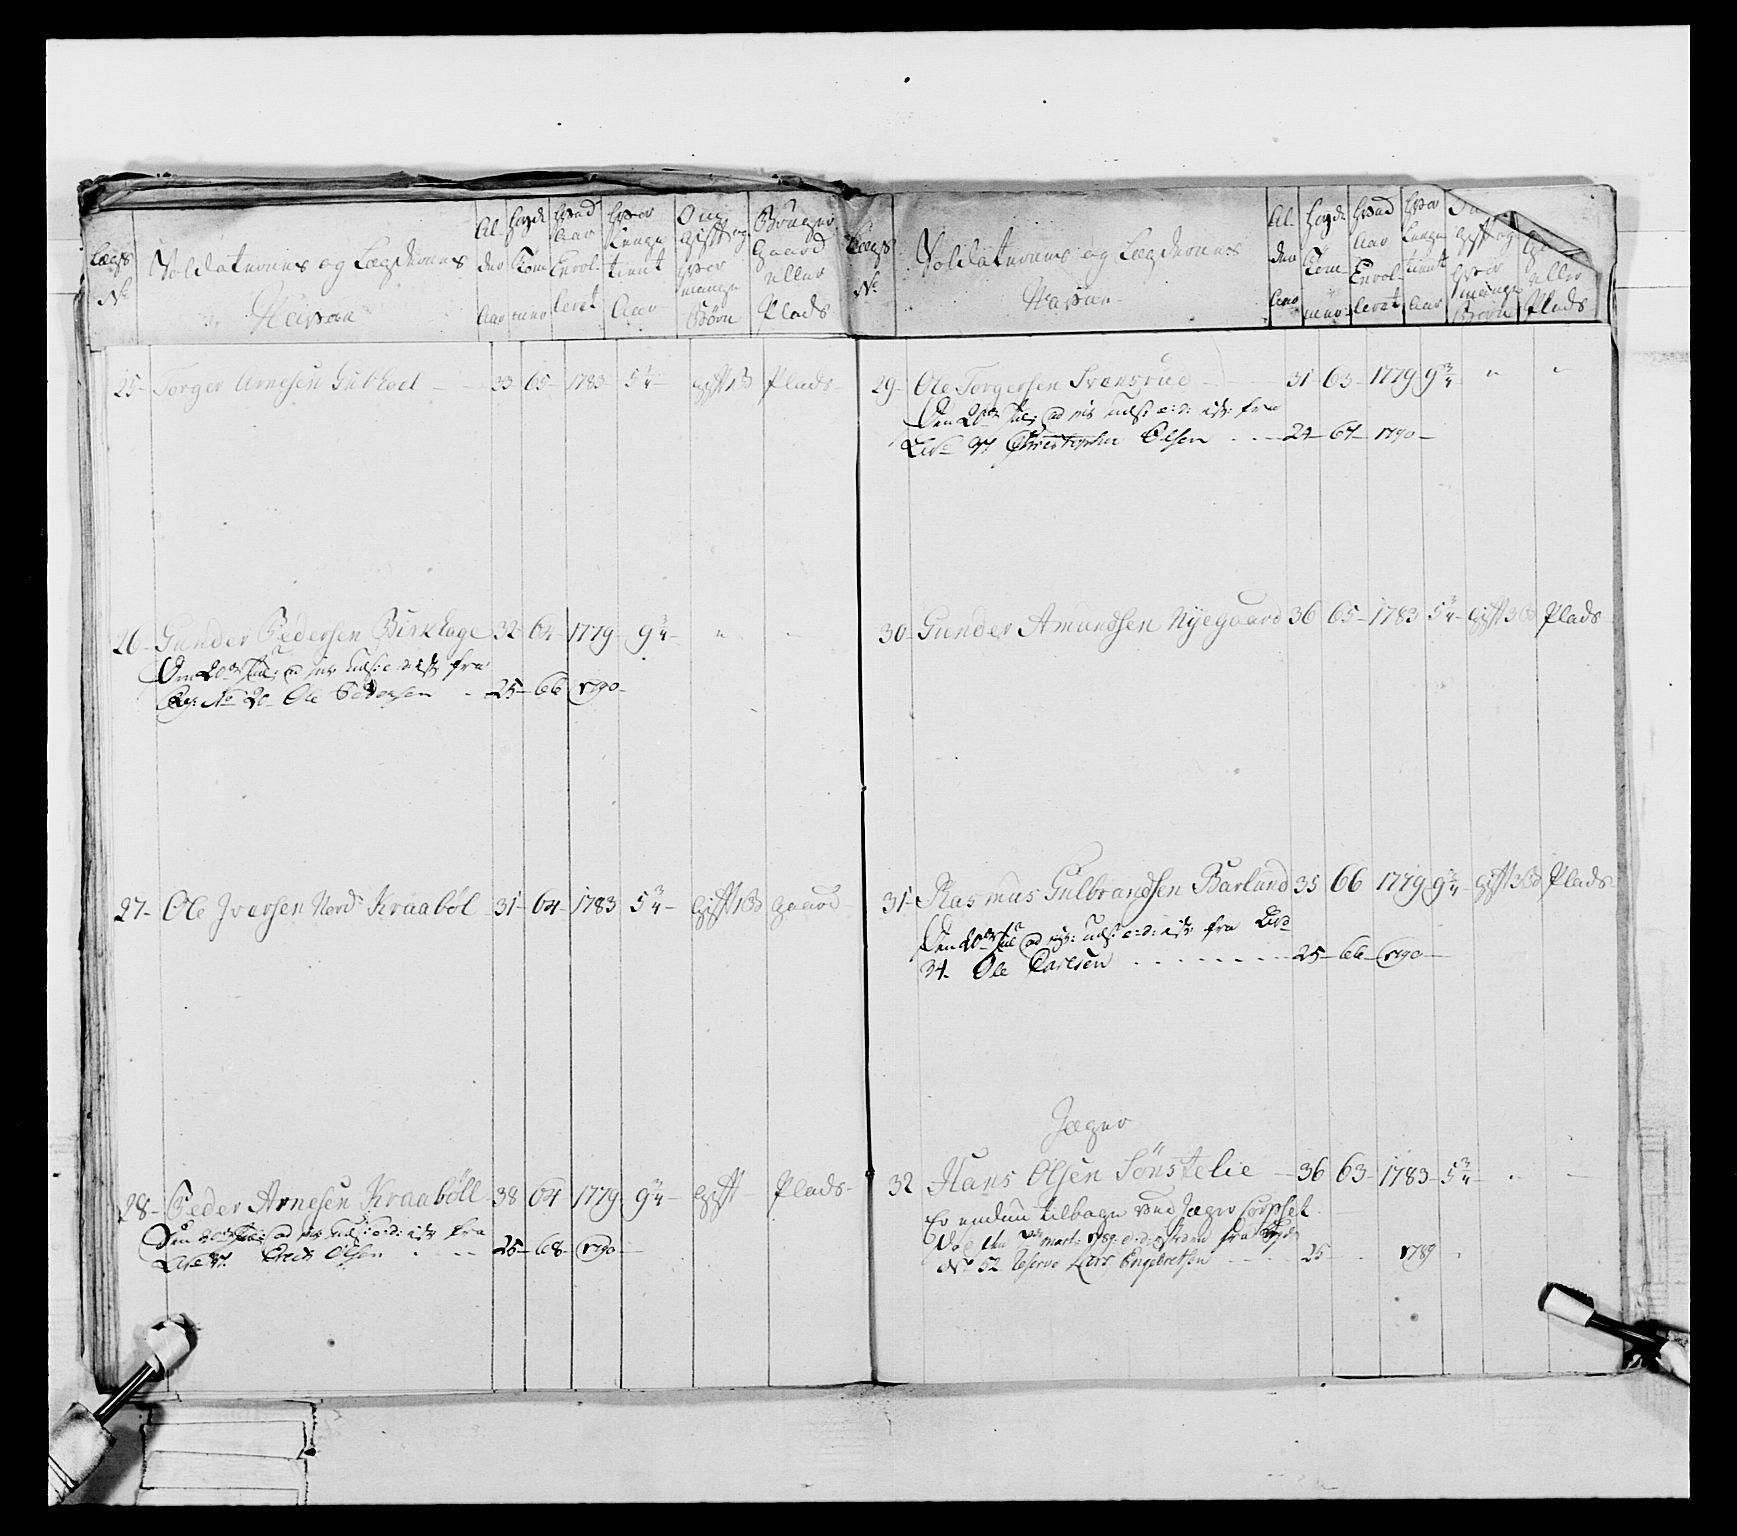 Lægs No
Soldaternes og Lægdernes Navne
Alder Aar
Høyde Tommer
Hvad Aar Enrolleret
Hvor Længe tient Aar
Om gift og hvor mange Børn
Bruger Gaard eller Plads
25- Torger Arnesen - 33- 65- 1783- 5 3/4- gift 1 B Plads-
26- Gunder Pedersen Birkhage 32- 64- 1779- 9 3/4- " -
Den 20de fra
No 20 Ole Pedersen - 25- 66- 1790-
27- Ole Iversen Nord Kraabøl - 31- 64- 1783- 5 3/4- gift 1 B gaard-
28- Peder Arnesen Kraabøll 38- 64- 1779- 9 3/4- gift- Plads-
Den 20de fra
Olsen - - - 25- 68- 1790-
Lægs No
Soldaternes og Lægdernes Navne
Alder Aar
Høyde Tommer
Hvad Aar Enrolleret
Hvor Længe tient Aar
gift og hvor mange Børn
eller Plads
29- Ole Torgersen Svensrud - 31- 63- 1779- 9 3/4- " "
Den 20de fra
Christopher Olsen - - - 24- 64- 1790-
30- Gunder Amundsen Nyegaard 36 65- 1783 5 3/4- gift 3 B Plads-
31- Rasmus Gulbrandsen Barlund 35 66 1779- 9 3/4- gift 3 B Plads-
Den 20de fra
34- Ole Carlsen - - - 25- 66- 1790-
Jæger
32 Hans Olsen Sønstelie - 36 63- 1783- 5 3/4- " -
Er endnu tilbage ved Jæger Corpset.
1789 fra
No 52 Reserve Lars Engebretsen - - - 25- 1789